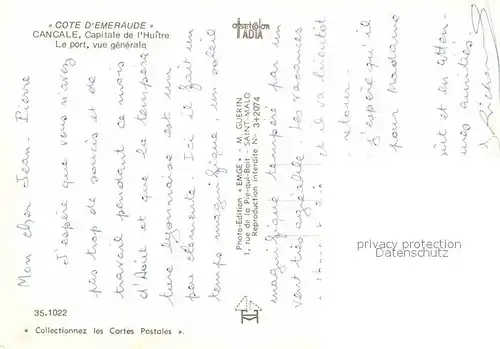 « COTE D'EMERAUDE »
CANCALE, Capitale de l'Huître
Le port, vue générale
OFFSETCOLOR
IADIA
Mon cher Jean-Pierre
J'espère que vous n'avez
pas trop de soucis et de
travail pendant ce mois
d'Août et que la tempéra
ture lyonnaise est un
peu clémente. Ici il fait un
temps magnifique, un soleil
magnifique tempéré par un
vent très agréable. Les vacances
et il va bientôt
retour.
J'espère qu'il
pour Madame
et en atten-
mes amitiés
Photo-Edition « EMGE » - M. GUERIN
1, rue de la Pie-qui-Boit - SAINT-MALO
Reproduction interdite N° 3+2074
privacy protection
Datenschutz
35.1022
« Collectionnez les Cartes Postales ».